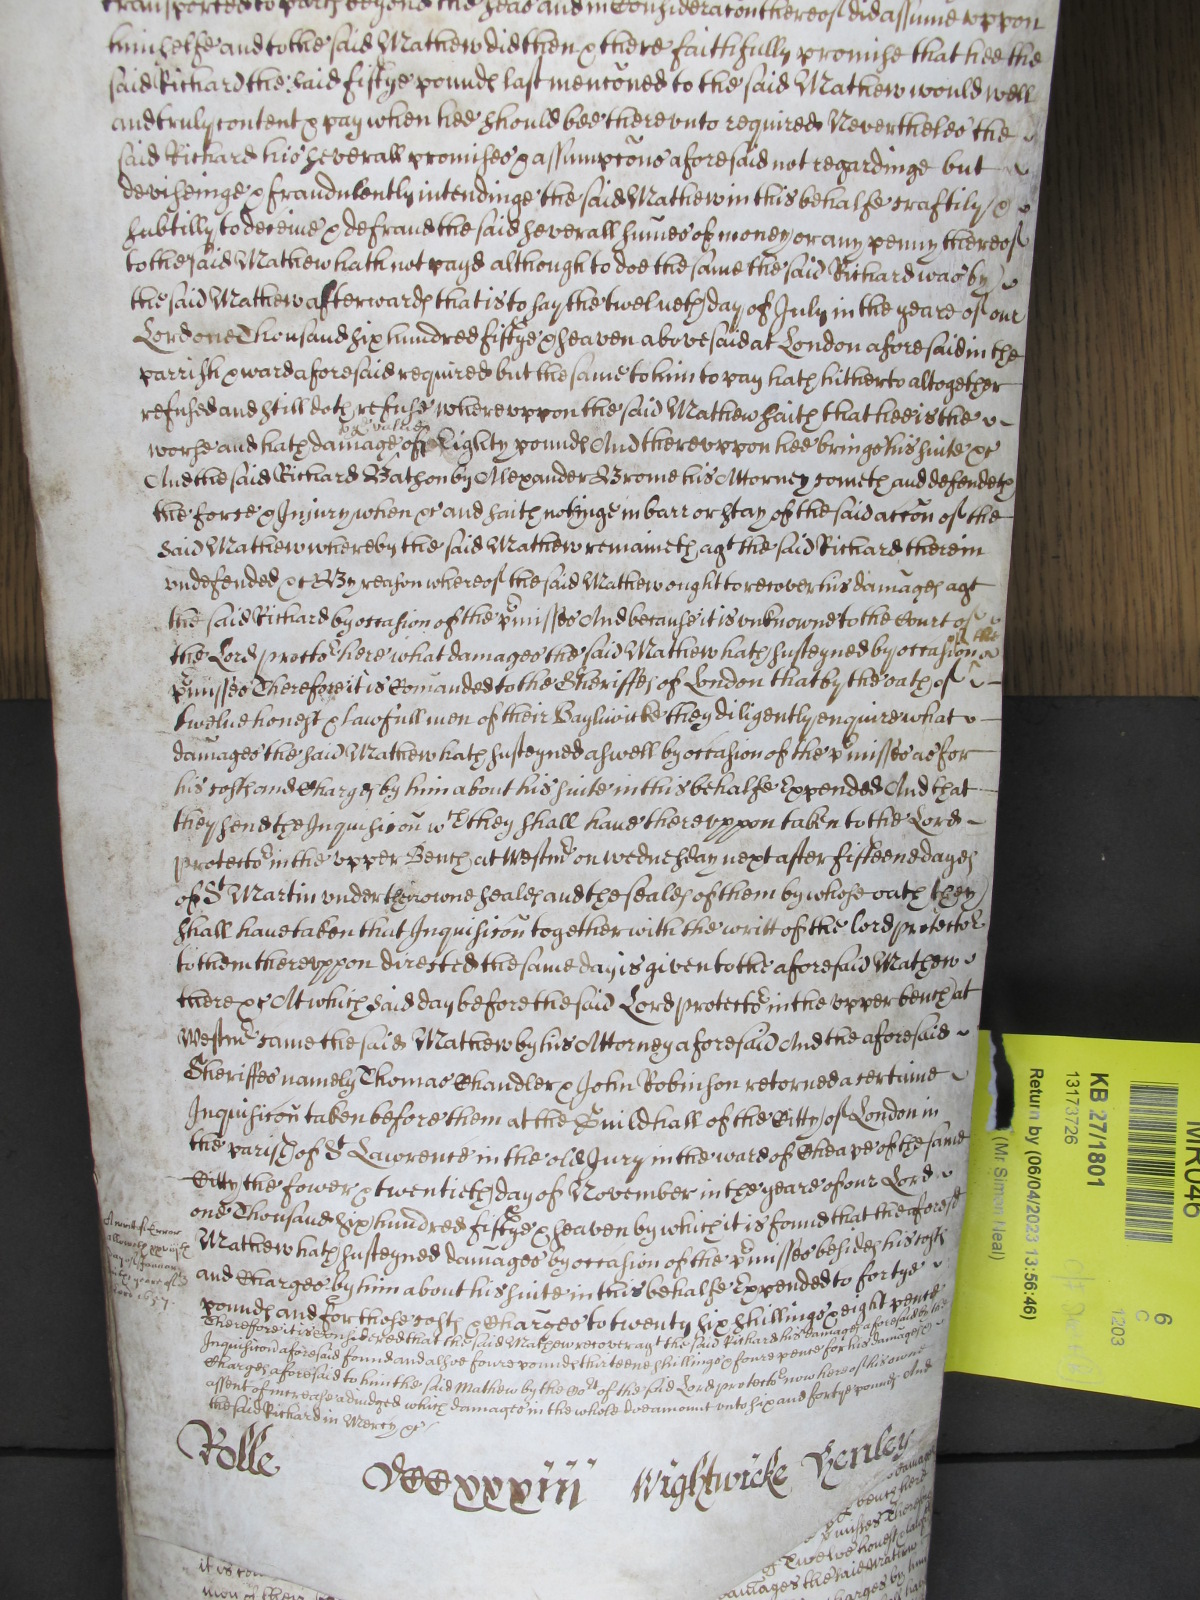 transported to parts beyond the seas and in Consideracon thereof did assume vppon
himselfe and to the said Mathew did then & there faithfully promise that hee the
said Richard the said fiftye pounds last mencōned to the said Mathew would well
and truly content & pay when hee should bee therevnto required Neverthelesse the
said Richard his severall promises & assumpcōns aforesaid not regardinge but
deviseinge & fraudulently intendinge the said Mathew in this behalfe craftily &
subtilly to deceive & defraud the said severall sūmes of money or any penny thereof
to the said Mathew hath not payd although to doe the same the said Richard was by
the said Mathew afterwards that is to say the twelueth day of July in the yeare of our
Lord one Thousand six hundred fiftye & seaven abovesaid at London aforesaid in the
parrish & ward aforesaid required but the same to him to pay hath hitherto altogether
refused and still doth refuse wherevppon the said Mathew saith that hee is the
worse and hath damage of Eighty pounds And therevppon hee brings his suite &c
And the said Richard Bathon by Alexander Brome his Attorney cometh and defendeth
the force & Injury when &c and saith nothinge in barr or stay of the said accōn of the
said Mathew whereby the said Mathew remaineth agt the said Richard therein
vndefended &c By reason whereof the said Mathew ought to recover his damages agt
the said Richard by occasion of the pmisses And because it is vnknowne to the Court of
the Lord protector here what damages the said Mathew hath susteyned by occasion of the
pmisses Therefore it is Comāunded to the Sheriffes of London that by the oath of
twelue honest & lawfull men of their Bayliwicke they diligently enquire what
damages the said Mathew hath susteyned aswell by occasion of the pmisses as for
his costs and Charges by him about his suite in this behalfe Expended And that
they send the Inquisicōn wch they shall have therevppon taken to the Lord
Protector in the vpper Bench at Westmr on wednesday next after fifteene dayes
of St Martin vnder their owne seales and the seales of them by whose oath they
shall have taken that Inquisicōn together with the writt of the lord protector
to them therevppon directed the same day is given to the aforesaid Mathew
there &c At which said day before the said Lord protector in the vpper bench at
Westmr came the said Mathew by his Attorney aforesaid And the aforesaid
Sheriffes namely Thomas Chandler & John Robinson retorned a certaine
Inquisicōn taken before them at the Guildhall of the Citty of London in
the parish of St Lawrence in the old Jury in the ward of Cheape of the same
Citty the fower & twentieth day of November in the yeare of our Lord
one Thousand six hundred fiftye & seaven by which it is found that the aforesd
Mathew hath susteyned damages by occasion of the pmisses besides his costs
and Charges by him about his suite in this behalfe Expended to fortye
pounds and for those costs & Charges to twenty six shillings & eight pence
Therefore it is Considered that the said Mathew recover agt the said Richard his damages aforesaid by the
Inquisicōn aforesaid found and alsoe foure pounds thirteene shillings & foure pence for his damages
Charges aforesaid to him the said Mathew by the Cort of the said Lord protector now here of his owne
assent of increase adiudged which damages in the whole doe amount vnto six and fortye pounds And
the said Richard in Mercy &c
Rolle
Wightwicke
Henley
KB 27/1801
13173726
Return by (06/04/2023 13:56:46)
(Mr Simon Neal)
6
C
1203